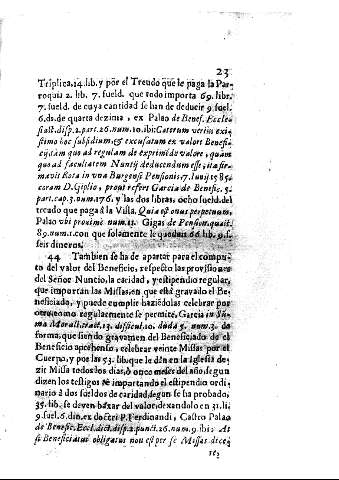 23
Triplica, 14. lib. y por el Treudo que le paga la Par-
roquia 2. lib. 7. sueld. que todo importa 69. libr.
7. sueld. de cuya cantidad se han de deducir 9. suel.
6. ds. de quarta dezima, ex Palao de Benef. Eccle-
siast. disp. 2. part. 26. num. 10. ibi: Cæterum verius exi-
stimo hoc subsidium, & excusatum ex valore Benefi-
cij, tam quo ad regulam de exprimēdo valore, quam
quo ad facultatem Nuntij deducendum esse, ita fir-
mavit Rota in vna Burgensis Pensionis, 7. Iunij 1585.
coram D. Gipsio, prout refert Garcia de Benefic. 3.
part. cap. 3. num. 176. y las dos libras, ocho sueld. del
treudo que paga à la Villa. Quia est onus perpetuum,
Palao vbi proximè num. 11. Gigas de Pension. quæst.
89. num. 1. con que solamente le quedan 66. lib. 9. s.
seis dineros.
44 Tambien se ha de apartar para el compu-
to del valor del Beneficio, respecto las provisiones
del Señor Nuncio, la caridad, y estipendio regular,
que importan las Missas, en que està gravado el Be-
neficiado, y puede cumplir haziēdolas celebrar por
otro, como regularmente se permite, Garcia in Su-
ma Moral. tract. 13. difficul. 10. duda 5. num. 3. de
forma, que siendo gravamen del Beneficiado de el
Beneficio aprehenso, celebrar veinte Missas por el
Cuerpo, y por las 53. lib. que le dàn en la Iglesia de-
zir Missa todos los dias, ò onze meses del año, segun
dizen los testigos se importando el estipendio ordi-
nario à dos sueldos de caridad, segun se ha probado,
35. lib. se deven baxar del valor, dexandolo en 31. li.
9. suel. 6. din. ex doctri P. Ferdinandi, Castro Palao
de Benefic. Eccl. dict. disp. 2. punct. 26. num. 9. ibi: At
si Beneficiatus obligatus non est per se Missas dice-